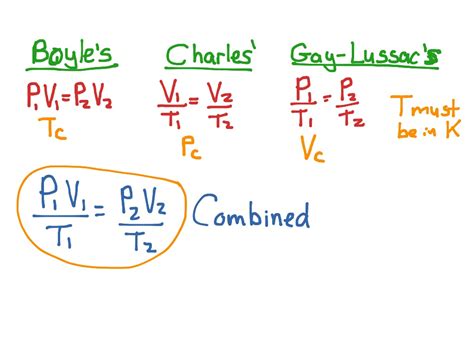 Boyle's Charles' Gay-Lussac's
P₁V₁=P₂V₂ V₁/T₁=V₂/T₂ P₁/T₁=P₂/T₂ T must
be in K
Tc Pc Vc
P₁V₁/T₁=P₂V₂/T₂ Combined